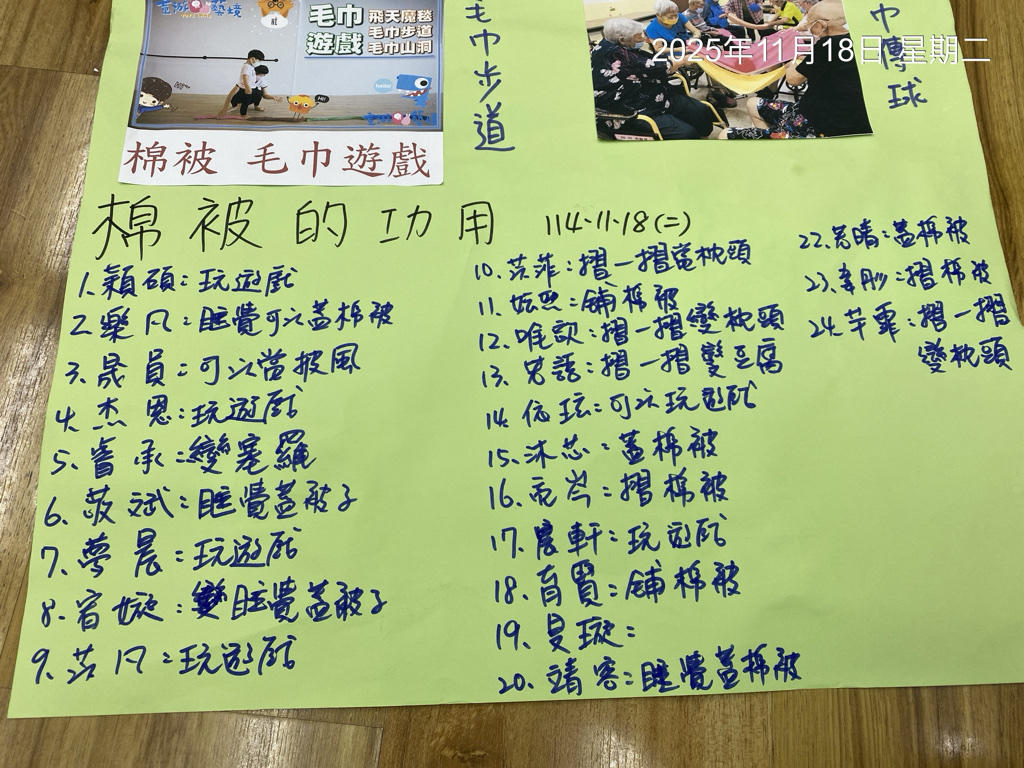 毛巾
遊戲
飛天魔毯
毛巾步道
毛巾山洞
Hi!
hello!
棉被 毛巾遊戲
毛巾步道
2025年11月18日 星期二
巾傳球
棉被的功用 114.11.18(二)
1.穎碩:玩遊戲
2.樂凡:睡覺可以蓋棉被
3.晟員:可以當披風
4.杰恩:玩遊戲
5.睿承:變塞羅
6.苡斌:睡覺蓋被子
7.夢晨:玩遊戲
8.宥嫙:變睡覺蓋被子
9.苡凡:玩遊戲
10.芸菲:摺一摺當枕頭
11.妘恩:舖棉被
12.唯歆:摺一摺變枕頭
13.苡語:摺一摺變豆腐
14.依玹:可以玩遊戲
15.沐芯:蓋棉被
16.雨岑:摺棉被
17.宸軒:玩遊戲
18.育賢:舖棉被
19.旻璇:
20.靖客:睡覺蓋棉被
22.晴:蓋棉被
23.彤:摺棉被
24.芊霏:摺一摺
變枕頭